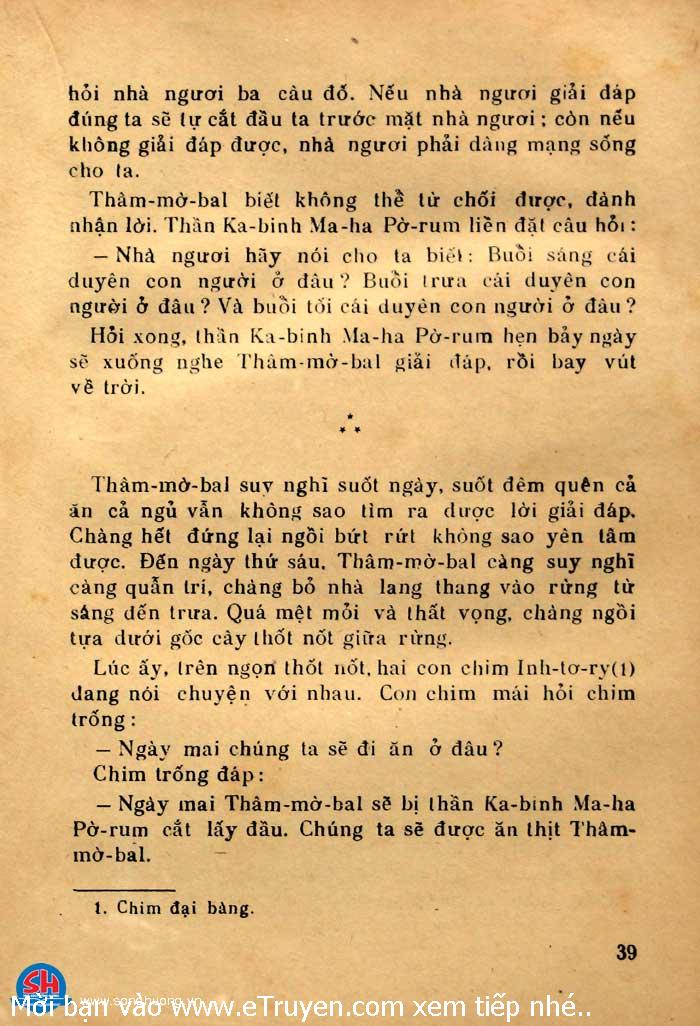 hỏi nhà ngươi ba câu đố. Nếu nhà ngươi giải đáp
đúng ta sẽ tự cắt đầu ta trước mặt nhà ngươi; còn nếu
không giải đáp được, nhà ngươi phải dâng mạng sống
cho ta.
Thâm-mờ-bal biết không thể từ chối được, đành
nhận lời. Thần Ka-binh Ma-ha Pờ-rum liền đặt câu hỏi:
— Nhà ngươi hãy nói cho ta biết: Buổi sáng cái
duyên con người ở đâu? Buổi trưa cái duyên con
người ở đâu? Và buổi tối cái duyên con người ở đâu?
Hỏi xong, thần Ka-binh Ma-ha Pờ-rum hẹn bảy ngày
sẽ xuống nghe Thâm-mờ-bal giải đáp, rồi bay vút
về trời.
* * *
Thâm-mờ-bal suy nghĩ suốt ngày, suốt đêm quên cả
ăn cả ngủ vẫn không sao tìm ra được lời giải đáp.
Chàng hết đứng lại ngồi bứt rứt không sao yên tâm
được. Đến ngày thứ sáu, Thâm-mờ-bal càng suy nghĩ
càng quẫn trí, chàng bỏ nhà lang thang vào rừng từ
sáng đến trưa. Quá mệt mỏi và thất vọng, chàng ngồi
tựa dưới gốc cây thốt nốt giữa rừng.
Lúc ấy, trên ngọn thốt nốt, hai con chim Inh-tơ-ry(1)
đang nói chuyện với nhau. Con chim mái hỏi chim
trống:
— Ngày mai chúng ta sẽ đi ăn ở đâu?
Chim trống đáp:
— Ngày mai Thâm-mờ-bal sẽ bị thần Ka-binh Ma-ha
Pờ-rum cắt lấy đầu. Chúng ta sẽ được ăn thịt Thâm-
mờ-bal.
1. Chim đại bàng.
39
SH
www.songhuong.vn
Mời bạn vào www.eTruyen.com xem tiếp nhé..